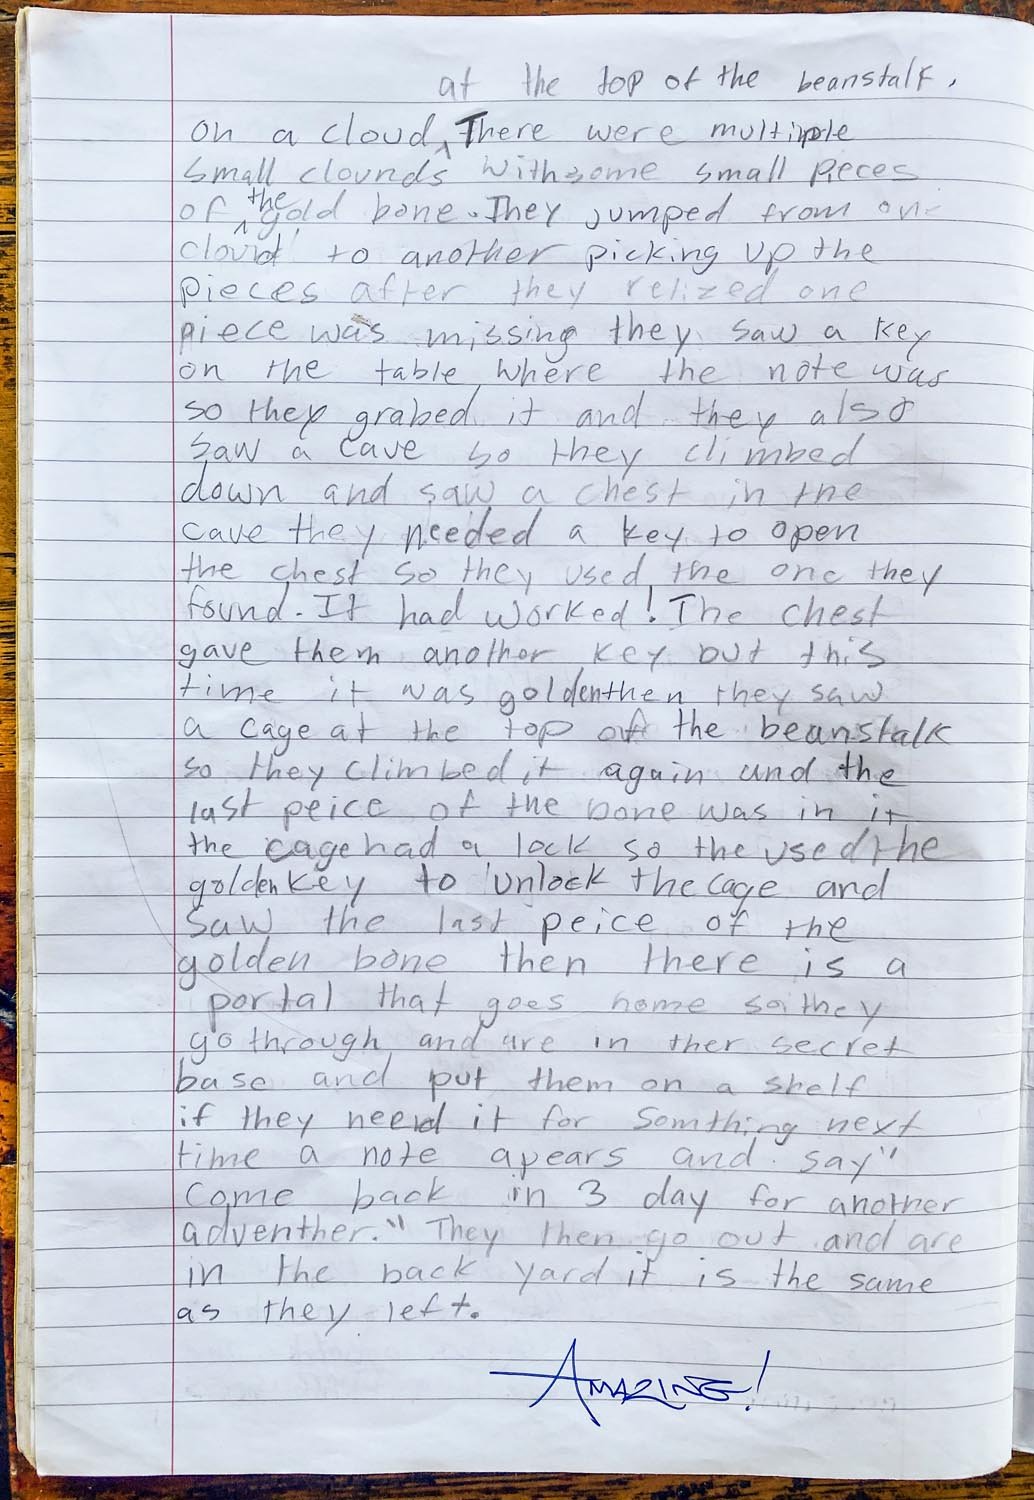 at the top of the beanstalk.
on a cloud, There were multiple
small clounds with some small pieces
of the gold bone. They jumped from one
cloud to another picking up the
pieces after they relized one
piece was missing they saw a key
on the table where the note was
so they grabed it and they also
saw a cave so they climbed
down and saw a chest in the
cave they needed a key to open
the chest so they used the one they
found. It had worked! The chest
gave them another key but this
time it was golden then they saw
a cage at the top of the beanstalk
so they climbed it again and the
last peice of the bone was in it
the cage had a lock so the used the
golden key to unlock the cage and
saw the last peice of the
golden bone then there is a
portal that goes home so they
go through and are in ther secret
base and put them on a shelf
if they need it for somthing next
time a note apears and say"
Come back in 3 day for another
adventher." They then go out and are
in the back yard it is the same
as they left.
AMAZING!